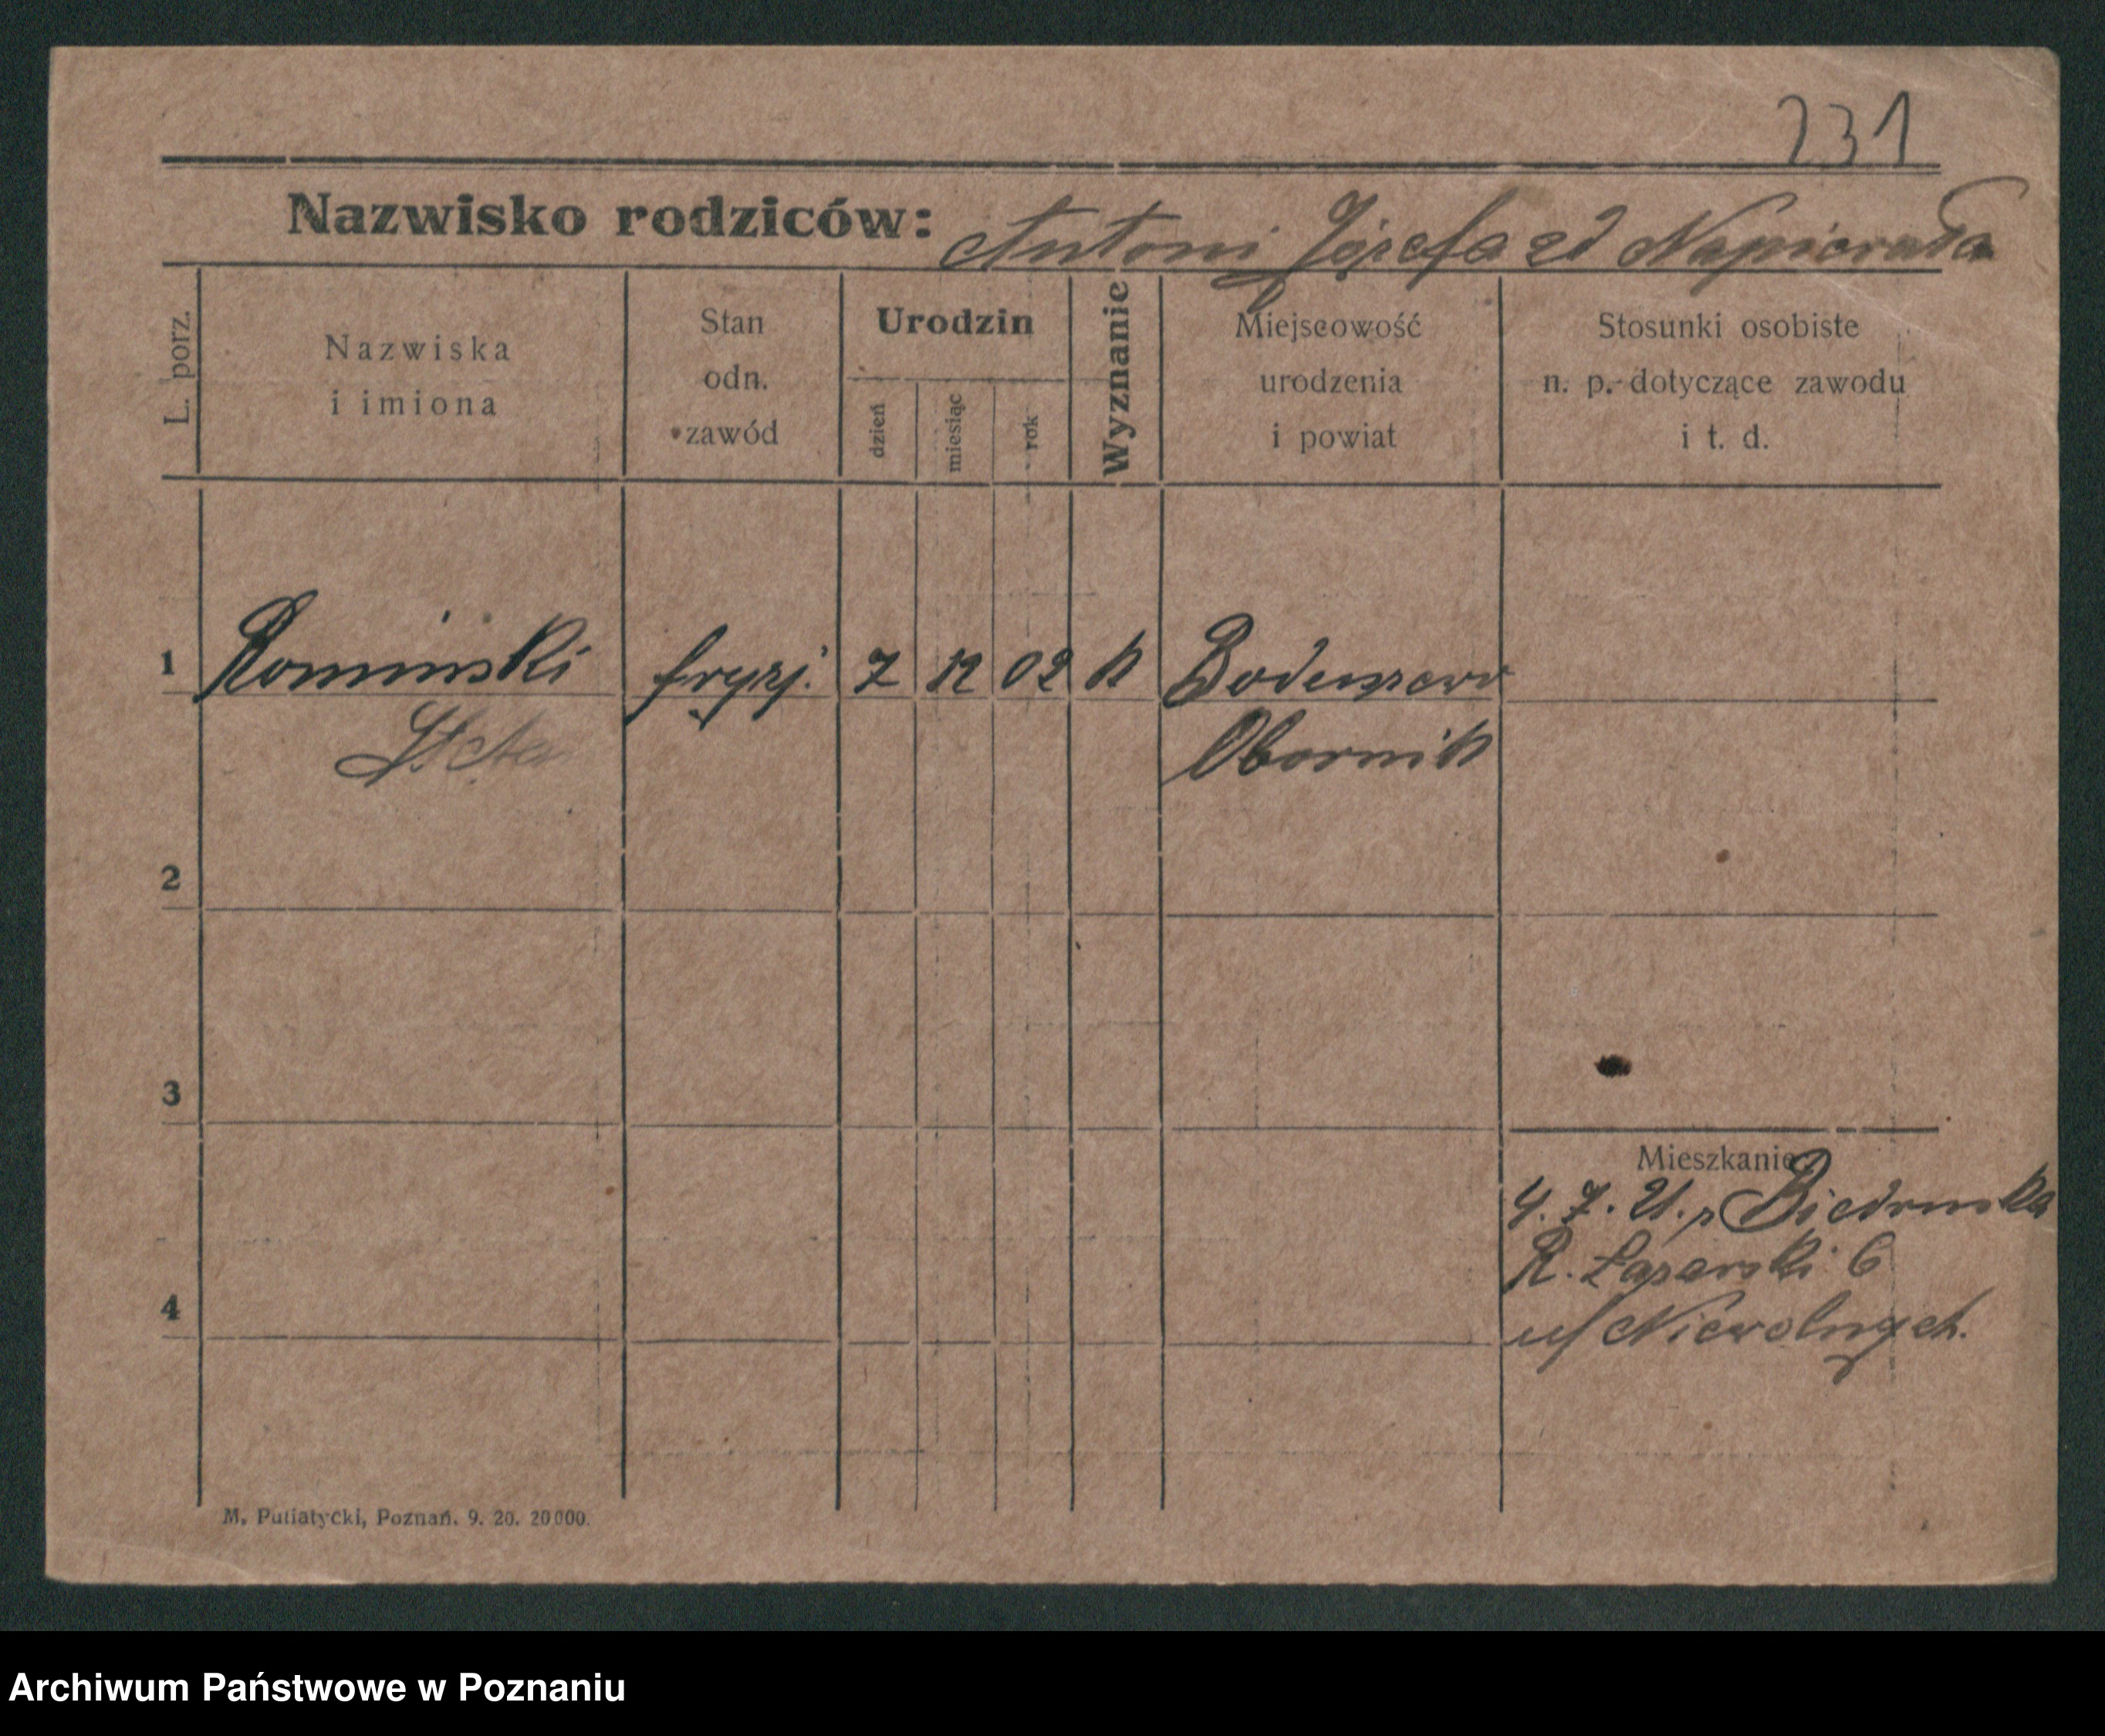 231
Nazwisko rodziców: Antoni Józefa zd Napierała
L. porz.
Nazwiska i imiona
Stan odn. zawód
Urodzin
dzień
miesiąc
rok
Wyznanie
Miejscowość urodzenia i powiat
Stosunki osobiste n. p. dotyczące zawodu i t. d.
1 fryzj. 7 12 02 k
Obornik
2
3
Mieszkanie
4. 7. 21. z Biedruska
R. Łazarski 6
u/ Niewolnych.
4
M. Putiatycki, Poznań. 9. 20. 20000.
Archiwum Państwowe w Poznaniu